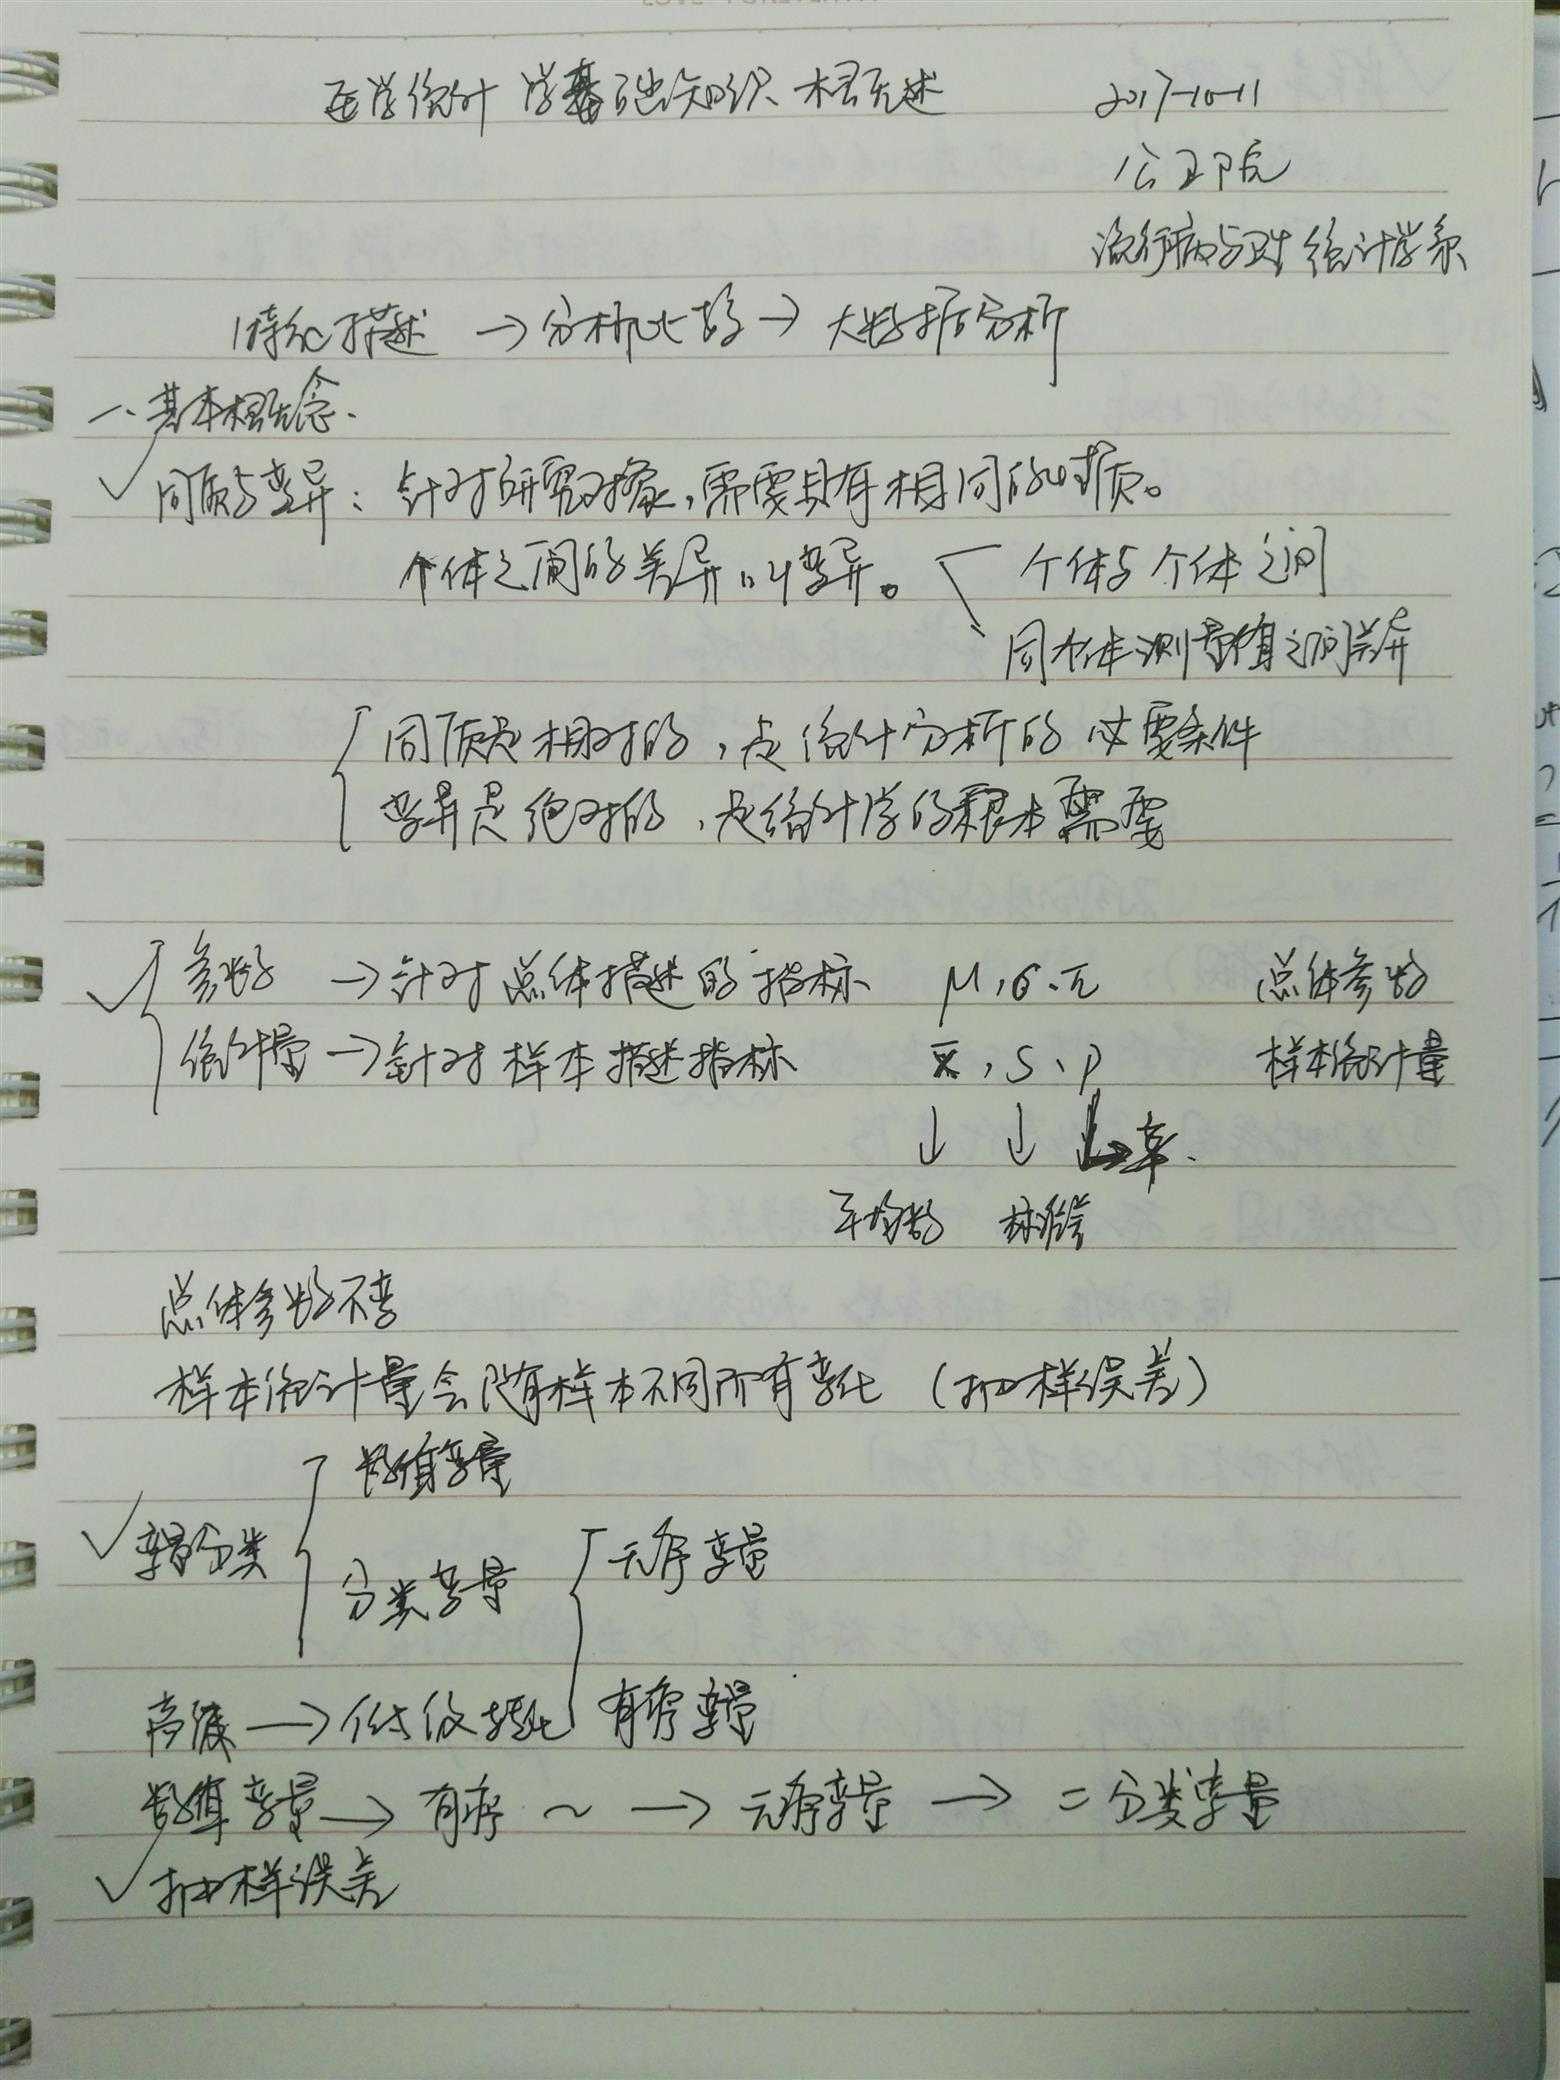 医学统计学基础知识概述 2017-10-11
公卫院
流行病与卫生统计学系
特征描述 → 分析比较 → 大数据分析
一、基本概念、
✓ 同质与变异：针对研究对象，需要具有相同的性质。
个体之间的差异叫变异。 个体与个体之间
同个体测量值之间差异
同质是相对的，是统计分析的必要条件
变异是绝对的，是统计学的根本需要
✓ 参数 → 针对总体描述的指标 μ，σ、π 总体参数
统计量 → 针对样本描述指标 x̄，S、P 样本统计量
↓ ↓ ↳ 率.
平均数 标准差
总体参数不变
样本统计量会随样本不同所有变化（抽样误差）
数值变量
✓ 变量分类 无序变量
分类变量
高级 → 低级转化 有序变量
数值变量 → 有序 ～ → 无序变量 → 二分类变量
✓ 抽样误差